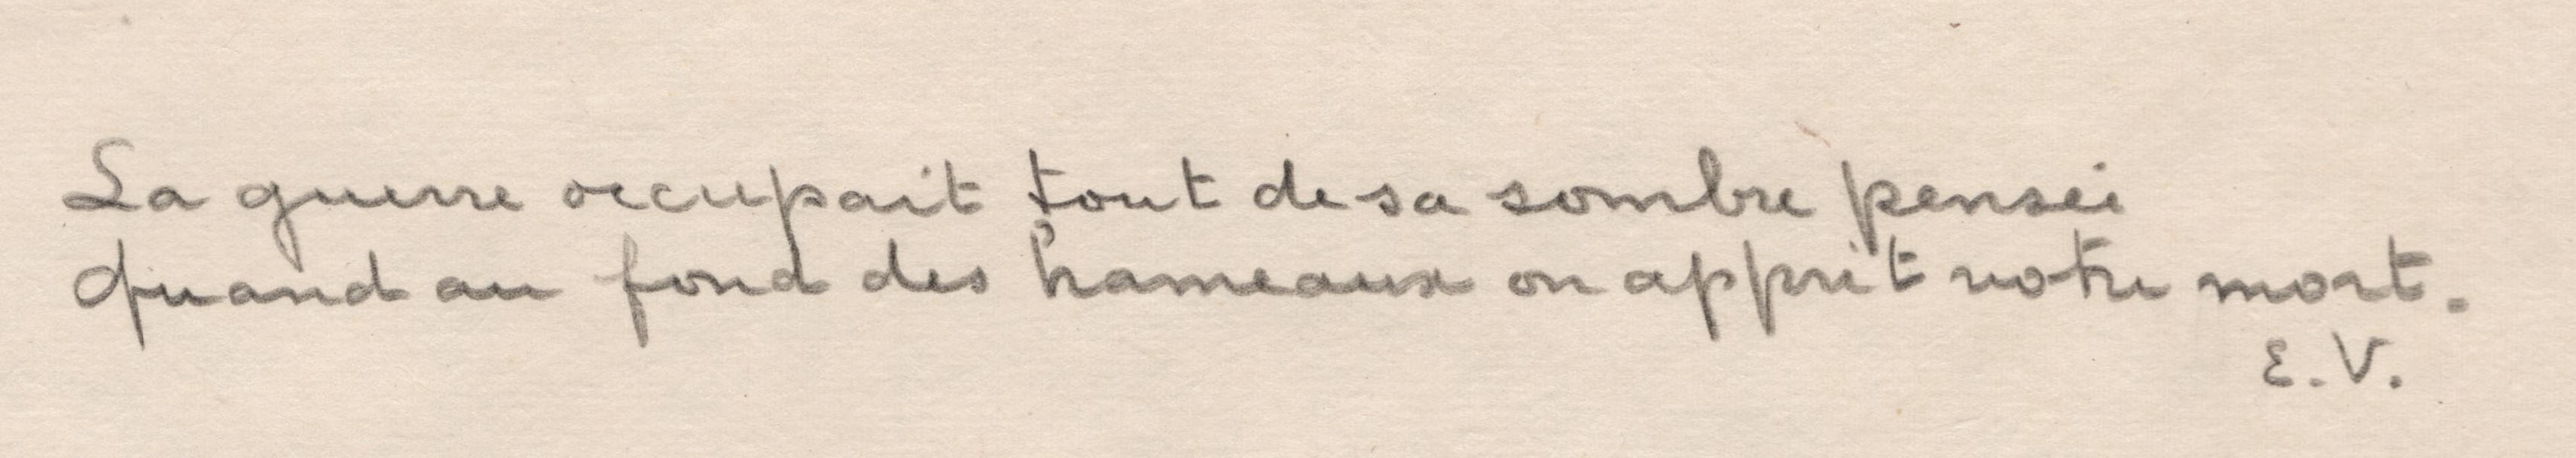 La guerre occupait tout de sa sombre pensée
quand au fond des hameaux on apprit votre mort.
E.V.